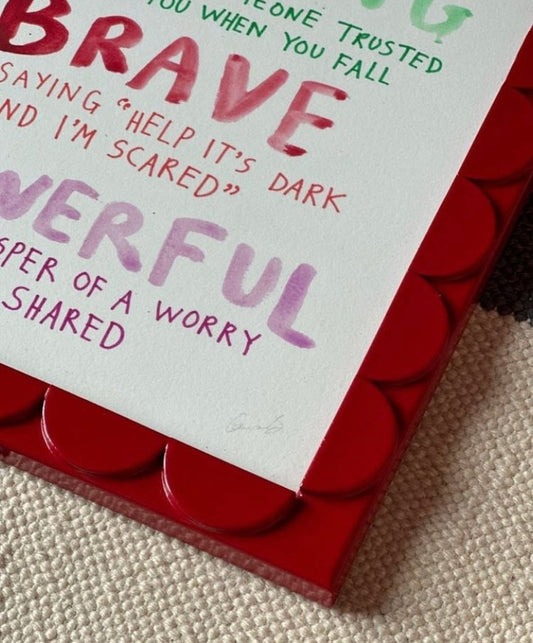 NG
EONE TRUSTED
YOU WHEN YOU FALL
BRAVE
SAYING “HELP IT'S DARK
ND I'M SCARED”
WERFUL
SPER OF A WORRY
SHARED